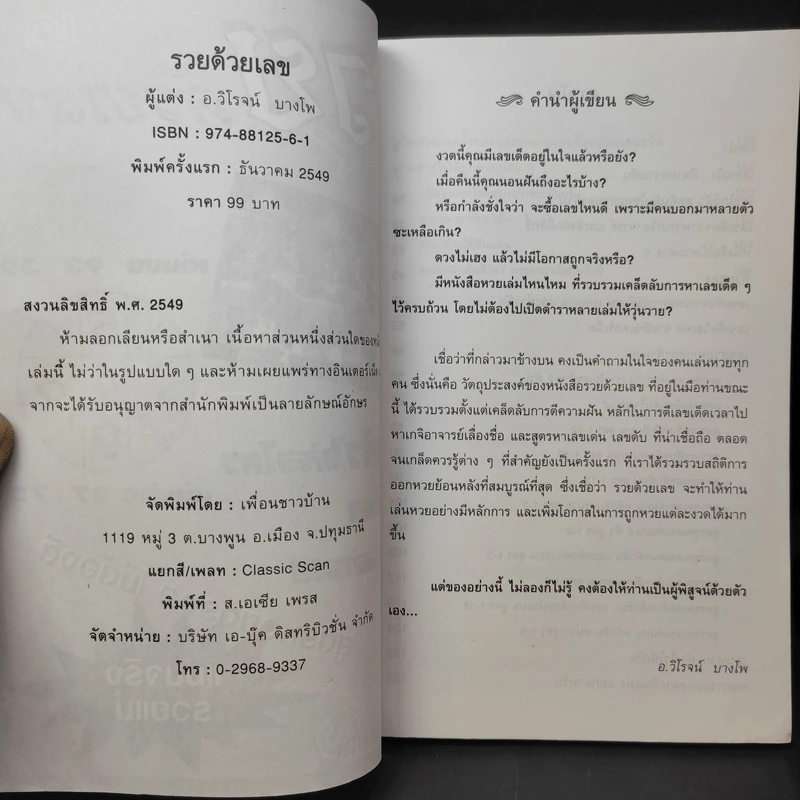 รวยด้วยเลข
ผู้แต่ง : อ.วิโรจน์ บางโพ
ISBN : 974-88125-6-1
พิมพ์ครั้งแรก : ธันวาคม 2549
ราคา 99 บาท
สงวนลิขสิทธิ์ พ.ศ. 2549
ห้ามลอกเลียนหรือสำเนา เนื้อหาส่วนหนึ่งส่วนใดของ
เล่มนี้ ไม่ว่าในรูปแบบใด ๆ และห้ามเผยแพร่ทางอินเตอร์เน็
จากจะได้รับอนุญาตจากสำนักพิมพ์เป็นลายลักษณ์อักษร
จัดพิมพ์โดย : เพื่อนชาวบ้าน
1119 หมู่ 3 ต.บางพูน อ.เมือง จ.ปทุมธานี
แยกสี/เพลท : Classic Scan
พิมพ์ที่ : ส.เอเซีย เพรส
จัดจำหน่าย : บริษัท เอ-บุ๊ค ดิสทริบิวชั่น จำกัด
โทร : 0-2968-9337
คำนำผู้เขียน
งวดนี้คุณมีเลขเด็ดอยู่ในใจแล้วหรือยัง?
เมื่อคืนนี้คุณนอนฝันถึงอะไรบ้าง?
หรือกำลังชั่งใจว่า จะซื้อเลขไหนดี เพราะมีคนบอกมาหลายตัว
ซะเหลือเกิน?
ดวงไม่เฮง แล้วไม่มีโอกาสถูกจริงหรือ?
มีหนังสือหวยเล่มไหนไหม ที่รวบรวมเคล็ดลับการหาเลขเด็ด ๆ
ไว้ครบถ้วน โดยไม่ต้องไปเปิดตำราหลายเล่มให้วุ่นวาย?
เชื่อว่าที่กล่าวมาข้างบน คงเป็นคำถามในใจของคนเล่นหวยทุก
คน ซึ่งนั่นคือ วัตถุประสงค์ของหนังสือรวยด้วยเลข ที่อยู่ในมือท่านขณะ
นี้ ได้รวบรวมตั้งแต่เคล็ดลับการตีความฝัน หลักในการตีเลขเด็ดเวลาไป
หาเกจิอาจารย์เลื่องชื่อ และสูตรหาเลขเด่น เลขดับ ที่น่าเชื่อถือ ตลอด
จนเกล็ดควรรู้ต่าง ๆ ที่สำคัญยังเป็นครั้งแรก ที่เราได้รวมรวบสถิติการ
ออกหวยย้อนหลังที่สมบูรณ์ที่สุด ซึ่งเชื่อว่า รวยด้วยเลข จะทำให้ท่าน
เล่นหวยอย่างมีหลักการ และเพิ่มโอกาสในการถูกหวยแต่ละงวดได้มาก
ขึ้น
แต่ของอย่างนี้ ไม่ลองก็ไม่รู้ คงต้องให้ท่านเป็นผู้พิสูจน์ด้วยตัว
เอง...
อ.วิโรจน์ บางโพ